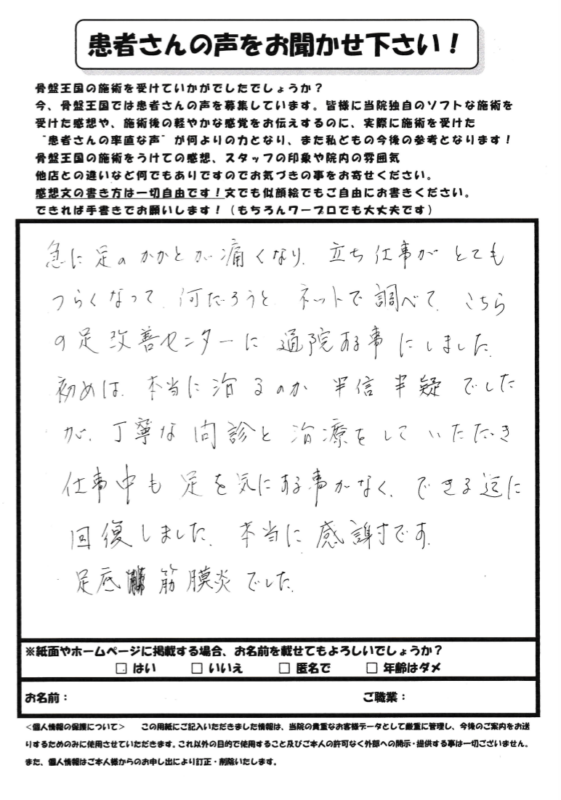 患者さんの声をお聞かせ下さい！
骨盤王国の施術を受けていかがでしたでしょうか？
今、骨盤王国では患者さんの声を募集しています。皆様に当院独自のソフトな施術を
受けた感想や、施術後の軽やかな感覚をお伝えするのに、実際に施術を受けた
"患者さんの率直な声"が何よりの力となり、また私どもの今後の参考となります！
骨盤王国の施術をうけての感想、スタッフの印象や院内の雰囲気
他店との違いなど何でもありですのでお気づきの事をお寄せください。
感想文の書き方は一切自由です！文でも似顔絵でもご自由にお書きください。
できれば手書きでお願いします！（もちろんワープロでも大丈夫です）
急に足のかかとが痛くなり、立ち仕事がとても
つらくなって、何だろうと ネットで調べて、こちら
の足改善センターに通院する事にしました。
初めは、本当に治るのか 半信半疑でした
が、丁寧な問診と治療をしていただき
仕事中も足を気にする事がなく、できる迄に
回復しました。本当に感謝です。
足底筋膜炎でした。
※紙面やホームページに掲載する場合、お名前を載せてもよろしいでしょうか？
□ はい □ いいえ □ 匿名で □ 年齢はダメ
お名前： ご職業：
＜個人情報の保護について＞ この用紙にご記入いただきました情報は、当院の貴重なお客様データとして厳重に管理し、今後のご案内をお送
りするためのみに使用させていただきます。これ以外の目的で使用すること及びご本人の許可なく外部への開示・提供する事は一切ございません。
また、個人情報はご本人様からのお申し出により訂正・削除いたします。